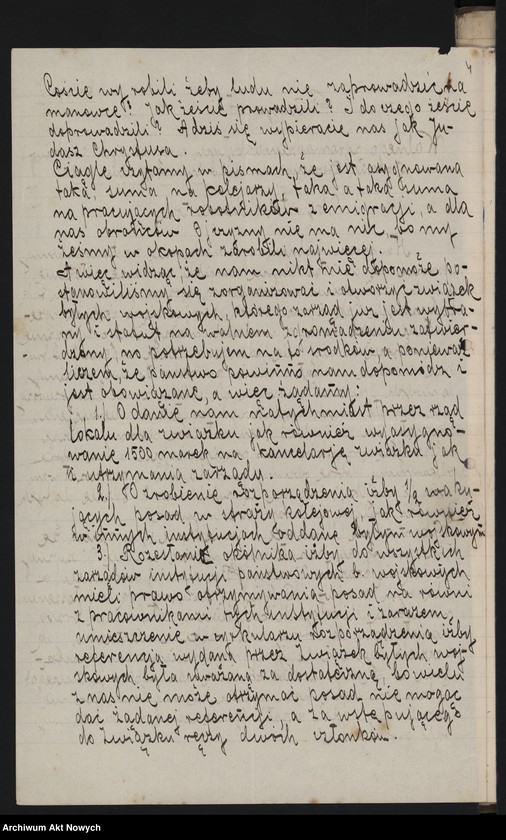 4
Coście wy robili żeby ludu nie zaprowadzić na
manowce? Jak żeście prowadzili? I do czego żeście
doprowadzili? A dziś się wypieracie nas jak Ju-
dasz Chrystusa.
Ciągle czytamy w pismach, że jest asygnowana
taka suma na kolejarzy, taka a taka suma
na pracujących robotników z emigracji, a dla
nas obrońców Ojczyzny nie ma nic, bo my
żeśmy w okopach zarobili najwięcej.
A więc widząc, że nam nikt nie dopomoże po-
stanowiliśmy się zorganizować i otworzyć związek
byłych wojskowych, którego zarząd już jest wybra-
ny i statut na walnem zgromadzeniu zatwier-
dzony, no potrzebujem na to środków, a ponieważ
liczem, że państwo powinno nam dopomódz i
jest obowiązane, a więc żądamy:
1. Odanie nam natychmiast przez rząd
lokalu dla związku jak również wyasygno-
wanie 1500 marek na kancelarję związku jak
i utrzymania zarządu.
2. O zrobienie rozporządzenia iżby ½ waku-
jących posad w straży kolejowej, jak również
w innych instytucjach oddane byłym wojskowym
3. Rozesłanie okólnika iżby do wszystkich
zarządów instytucji państwowych b. wojskowych
mieli prawo otrzymywania posad na równi
z pracownikami tych instytucji i zarazem
umieszczenie w cyrkularzu rozporządzenia iżby
referencja wydana przez Związek byłych woj-
skowych była uważana za dostateczną, bo wielu
z nas nie może otrzymać posad nie mogąc
dać żądanej referencji, a za wstępującego
do Związku ręczy dwóch członków.
Archiwum Akt Nowych